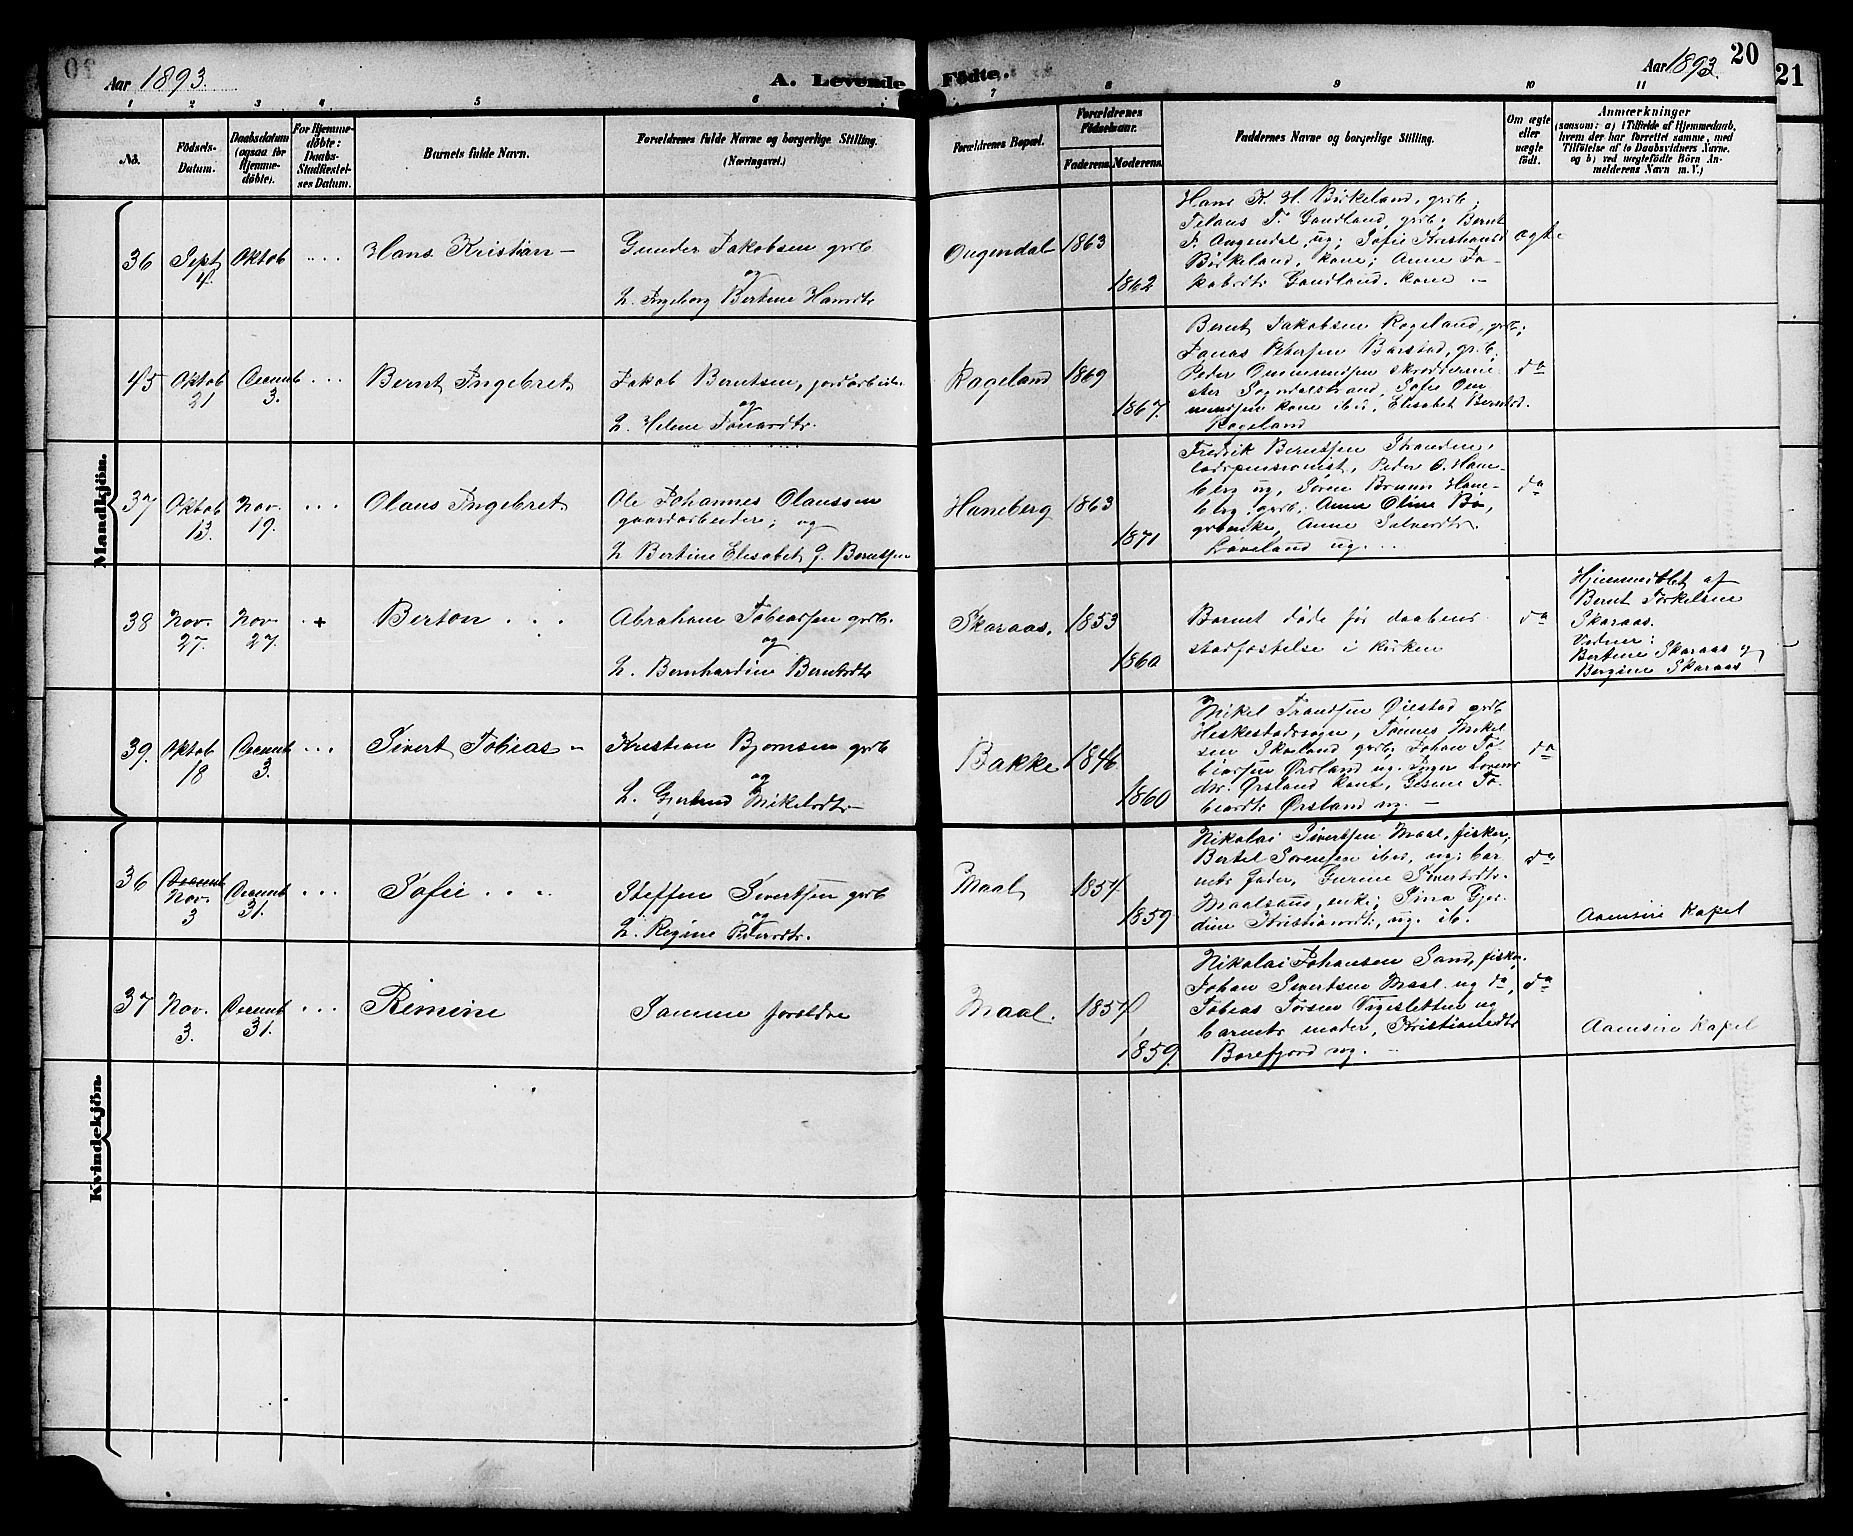 Aar 1893.
A. Levende Födte.
Aar 1893.
20
21
1 2 3 4 5 6 7 8 9 10 11
No.
Födsels-
Datum.
Daabsdatum
(ogsaa for
Hjemme-
döbte).
For Hjemme-
döbte:
Daabs-
Stadfæstel-
ses Datum.
Barnets fulde Navn.
Forældrenes fulde Navne og borgerlige Stilling.
(Næringsvei.)
Forældrenes Bopæl.
Forældrenes
Födselsaar.
Faderens.
Moderens.
Faddernes Navne og borgerlige Stilling.
Om ægte
eller
uægte
født.
Anmærkninger
(saasom: a) i Tilfælde af Hjemmedaab,
hvem der har forrettet samme, med
Tilföielse af to Daabsvidners Navne.
og b) ved uægtefödte Börn An-
melderens Navn m. V.)
Mandkjön.
36
Sept
4.
Oktob
Hans Kristian
Gunder Jakobsen grdb
og
h. Ingeborg Bertine Hansdtr
Ougendal
1863
1862
Hans K. H. Birkeland, grdb;
T. Gandland, grdb; Bernt
T. Ougendal, ug; Sofie
Birkeland, kone; Anne Ja-
kobsdtr Gandland, kone
ægt.
45
Oktob
21
Decemb
3.
Bernt Ingebret
Jakob Berntsen, jordarbeider
og
h. Helene Tønnesdtr.
Rageland
1869
1867.
Bernt Jakobsen Rageland, grdb;
Jonas Petersen Barstad, grdb.
Peder Ommundsen skrædderme-
ster Sogndalstrand, Sofie Om
mundsen kone ibd, Elisabet Berntsd.
Rageland
do
37
Oktob
13.
Nov.
19.
Olaus Ingebret
Ole Johannes Olaussen
gaardarbeider; og
h. Bertine Elisabet G. Berntsen
Haneberg
1863
1871
Fredrik Berntsen Stranden,
lodspensionist, Peder O. Hane-
berg ug, Søren Bruun Hane-
berg, grdb; Anne Oline Bø,
grdenke, Anne Salvesdtr.
Løveland ug.
do
38
Nov.
27.
Nov.
27.
+
Berton
Abraham Tobiassen grdb.
og
h. Bernhardine Berntsdtr
Skaraas.
1853
1860
Barnet døde før daabens
stadfæstelse i kirken
do
Hjemmedøbt af
Bernt Torkelsen
Skaraas.
Vidner:
Bertine Skaraas og
Bergine Skaraas
39.
Oktob
18
Decemb
3.
Sivert Tobias
Kristian Bjørnsen grdb
og
h. Gjertrud Mikelsdtr
Bakke
1846
1860
Mikel Frandsen Øiestad grdb
Heskestadsogn, Tønnes Mikel
sen Skaland grdb, Johan To
biassen Ørsland ug. Inger Lovens
dtr. Ørsland kone, Gesine To
biasdtr Ørsland ug.
do
Kvindekjön.
36
Decemb
Nov.
3
Decemb
31.
Sofie
Steffen Sivertsen grdb
og
h. Regine Pedersdtr.
Maal
1857
1859
Nikolai Sivertsen Maal, fisker,
Bertel Sørensen ibd, ug; bar
nets fader, Gurine Sivertsdtr.
enke; Sina Gjer-
dine Kristiansdtr, ug. ib.
do
Aamsire Kapel
37
Nov.
3.
Decemb
31.
Remine
Samme forældre
Maal.
1857
1859.
Nikolai Johansen Sand, fisker.
Johan Sivertsen Maal ug do,
Tobias Torsen Vagesletten ug
barnets moder, Kristiansdtr
Borefjord ug.
do
Aamsire Kapel